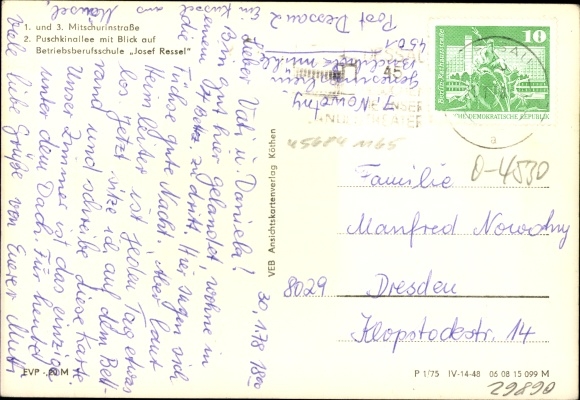 1. und 3. Mitschurinstraße
2. Puschkinallee mit Blick auf
Betriebsberufsschule „Josef Ressel"
30.1.78 18⁰⁰
Lieber Vati u. Daniela!
Bin gut hier gelandet, wohne in
einem Betten zu dritt. Hier sagen sich
die Füchse gute Nacht. Aber laut
Herm leiter ist jeden Tag etwas
los. Jetzt sitze ich auf dem Bett-
rand und schreibe diese Karte
Unser Zimmer ist das einzige
unter dem Dach. Für heute
Viele liebe Grüße von Eurer Mutti
aus
Ein Küssel
Post Dessau 2
4501
J. Nowotny
VEB Ansichtskartenverlag Köthen
10
Berlin, Rathausstraße
DEUTSCHE DEMOKRATISCHE REPUBLIK
45684 1165
0-4530
Familie
Manfred Nowotny
8029 Dresden
Klopstockstr. 14
EVP -,20 M
P 1/75 IV-14-48 06 08 15 099 M
29890